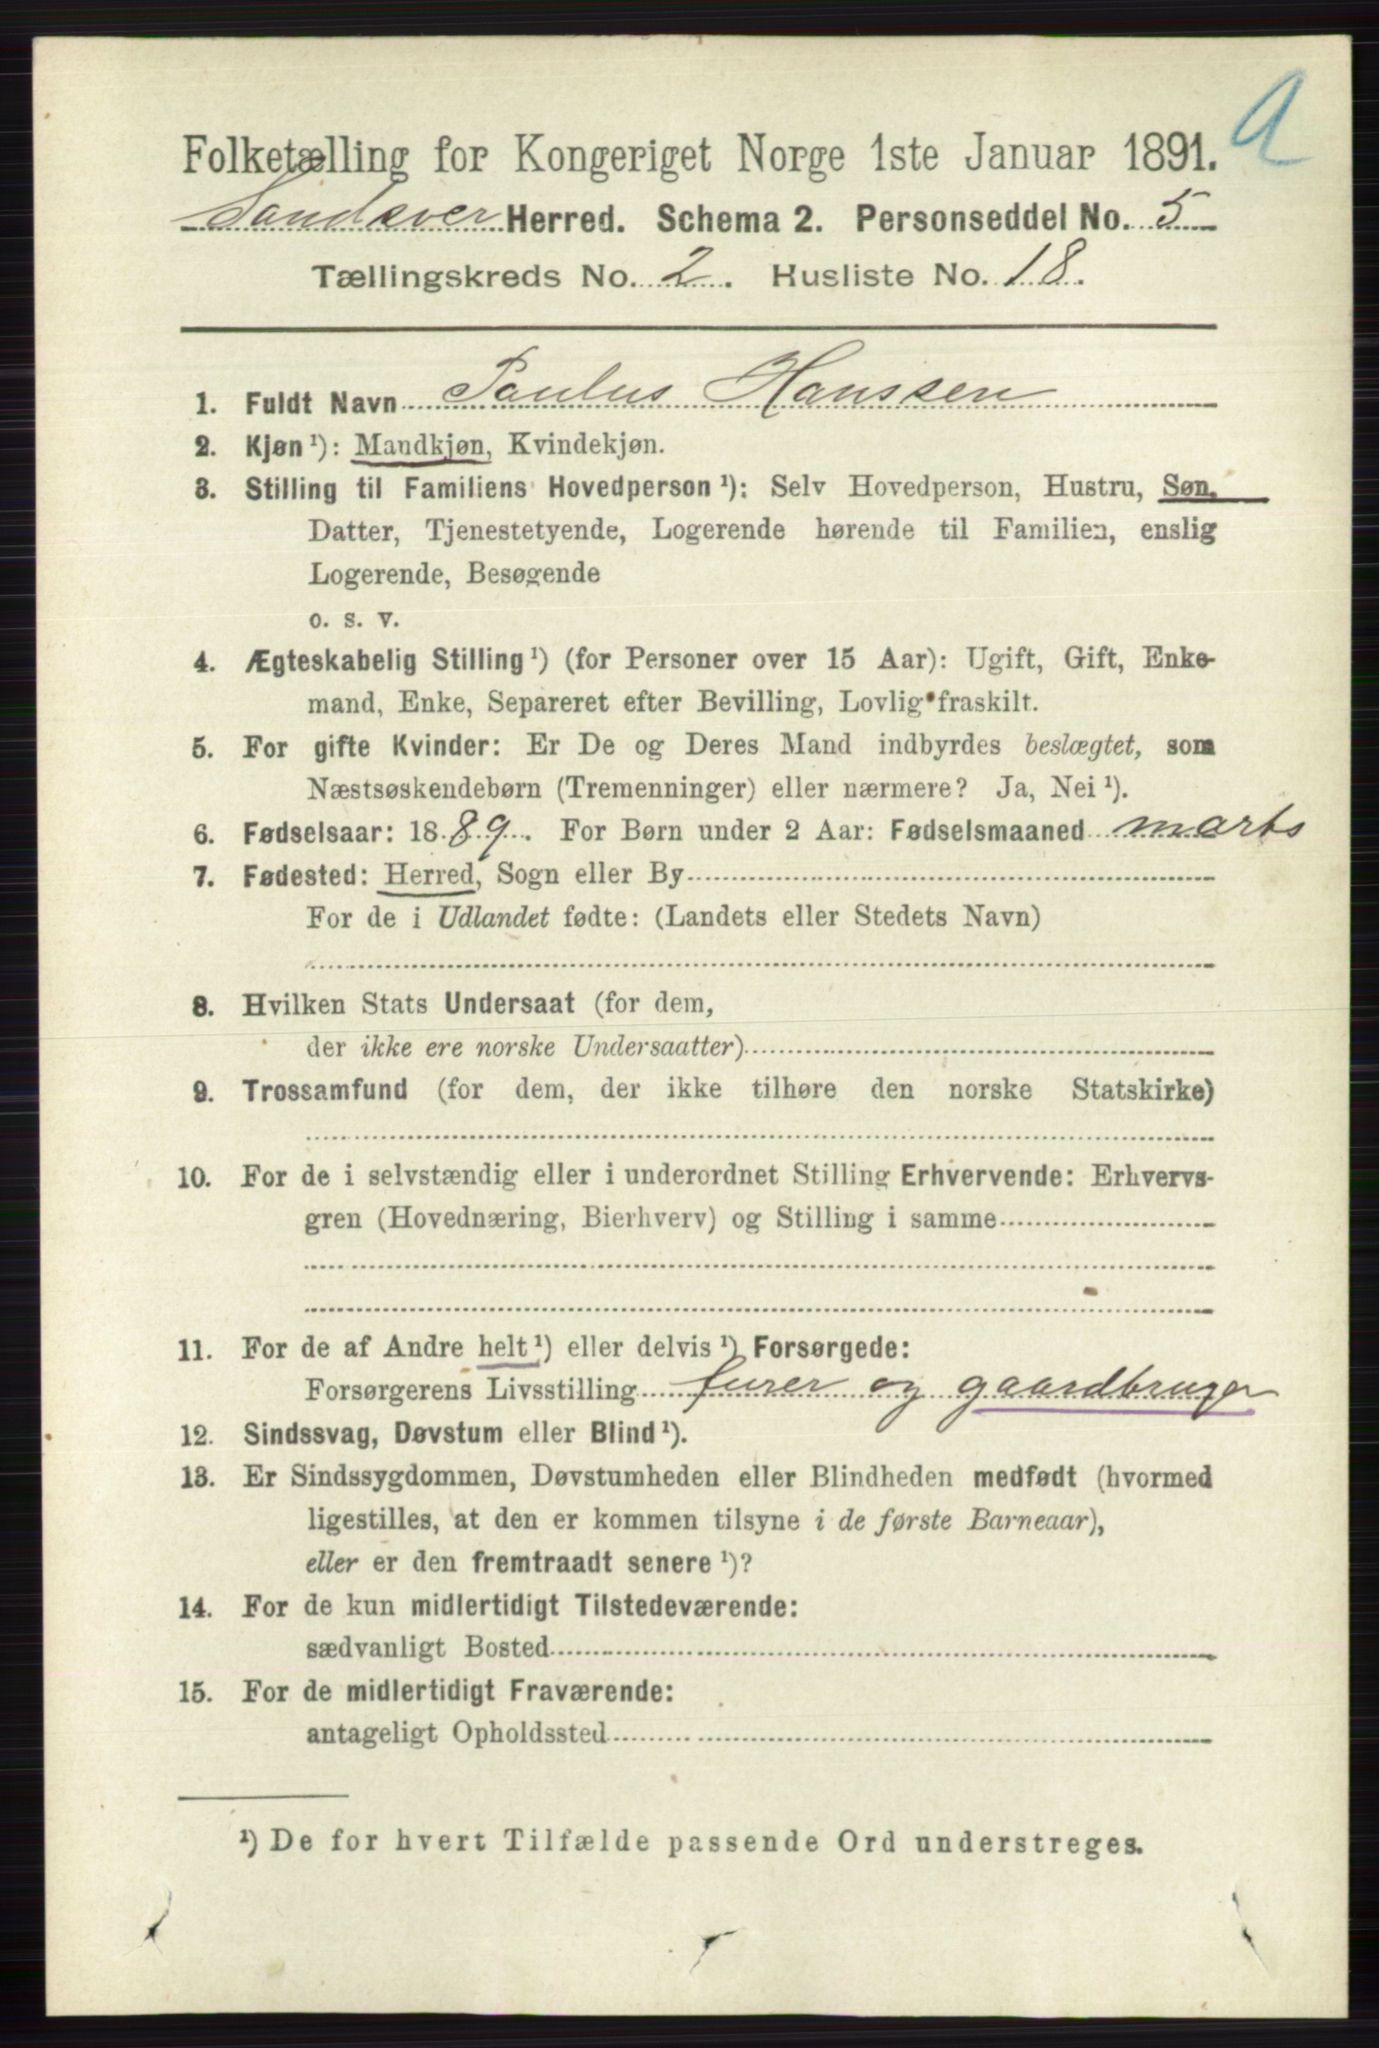 a
Folketælling for Kongeriget Norge 1ste Januar 1891.
Sandsver Herred. Schema 2. Personseddel No. 5
Tællingskreds No. 2. Husliste No. 18.
1. Fuldt Navn Paulus Hanssen
2. Kjøn ¹): Mandkjøn, Kvindekjøn.
3. Stilling til Familiens Hovedperson ¹): Selv Hovedperson, Hustru, Søn,
Datter, Tjenestetyende, Logerende hørende til Familien, enslig
Logerende, Besøgende
o. s. v.
4. Ægteskabelig Stilling ¹) (for Personer over 15 Aar): Ugift, Gift, Enke-
mand, Enke, Separeret efter Bevilling, Lovlig fraskilt.
5. For gifte Kvinder: Er De og Deres Mand indbyrdes beslægtet, som
Næstsøskendebørn (Tremenninger) eller nærmere? Ja, Nei ¹).
6. Fødselsaar: 1889. For Børn under 2 Aar: Fødselsmaaned marts
7. Fødested: Herred, Sogn eller By
For de i Udlandet fødte: (Landets eller Stedets Navn)
8. Hvilken Stats Undersaat (for dem,
der ikke ere norske Undersaatter)
9. Trossamfund (for dem, der ikke tilhøre den norske Statskirke)
10. For de i selvstændig eller i underordnet Stilling Erhvervende: Erhvervs-
gren (Hovednæring, Bierhverv) og Stilling i samme
11. For de af Andre helt ¹) eller delvis ¹) Forsørgede:
Forsørgerens Livsstilling furer og gaardbruger
12. Sindssvag, Døvstum eller Blind ¹).
13. Er Sindssygdommen, Døvstumheden eller Blindheden medfødt (hvormed
ligestilles, at den er kommen tilsyne i de første Barneaar),
eller er den fremtraadt senere ¹)?
14. For de kun midlertidigt Tilstedeværende:
sædvanligt Bosted
15. For de midlertidigt Fraværende:
antageligt Opholdssted
¹) De for hvert Tilfælde passende Ord understreges.